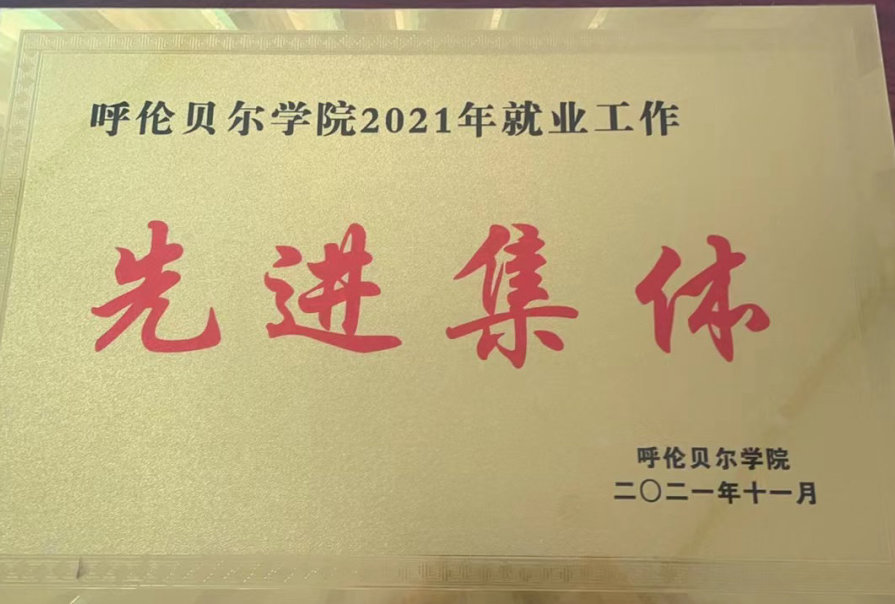 呼伦贝尔学院2021年就业工作
先进集体
呼伦贝尔学院
二〇二一年十一月